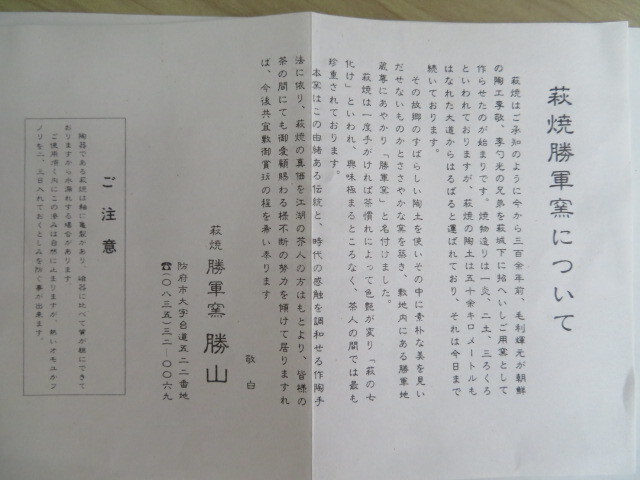 萩焼勝軍窯について
萩焼はご承知のように今から三百余年前、毛利輝元が朝鮮
の陶工李敬、李勺光の兄弟を萩城下に招へいしご用窯として
作らせたのが始まりです。焼物造りは一炎、二土、三ろくろ
といわれておりますが、萩焼の陶土は五十余キロメートルも
はなれた大道からはるばると運ばれており、それは今日まで
続いております。
その故郷のすばらしい陶土を使いその中に素朴な美を見い
だせないものかとささやかな窯を築き、敷地内にある勝軍地
蔵尊にあやかり「勝軍窯」と名付けました。
萩焼は一度手がければ茶慣れによって色艶が変り「萩の七
化け」といわれ、興味極まるところなく、茶人の間では最も
珍重されております。
本窯はこの由緒ある伝統と、時代の感触を調和せる作陶手
法に依り、萩焼の真価を江湖の茶人の方はもとより、皆様の
茶の間にても御愛顧賜わる様不断の努力を傾けて居りますれ
ば、今後共宜敷御賞玩の程を希い奉ります
敬白
萩焼 勝軍窯 勝山
防府市大字台道五二二番地
☎(〇八三五)三二―〇〇六九
ご注意
陶器である萩焼は釉に亀裂があり、磁器に比べて質が粗にできて
おりますから水漏れする場合があります。
ご使用頂く内にこの滲みは自然に止まりますが、熱いオモユかフ
ノリを二、三日入れておくとしみを防ぐ事が出来ます。